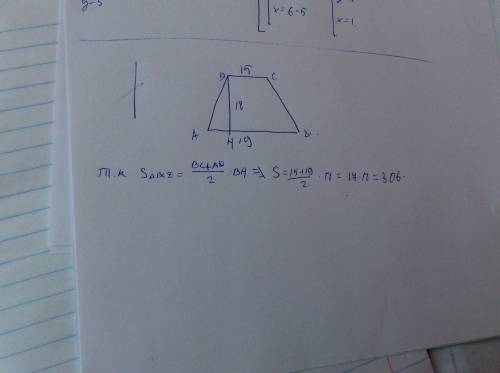 y=5
x=6-5
x=1
B 15 C
18
A H 19 D
Т.к S = BC+AD/2 · BH => S = 15+19/2 · 18 = 17·18 = 306